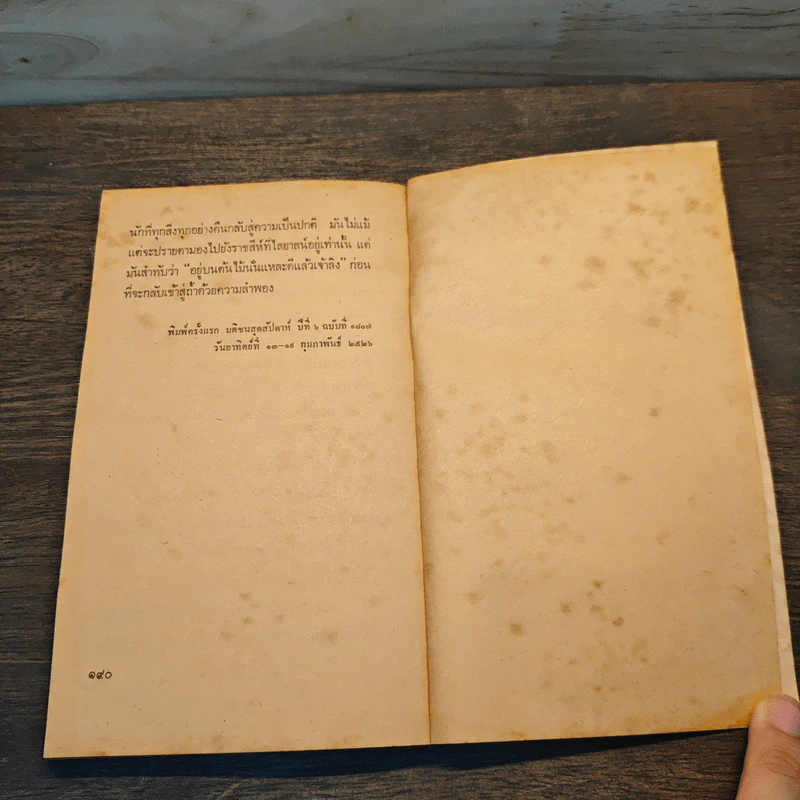 นักที่ทุกสิ่งทุกอย่างคืนกลับสู่ความเป็นปกติ มันไม่แม้
แต่จะปรายตามองไปยังราชสีห์ที่ไสยาสน์อยู่เท่านั้น แต่
มันสำทับว่า “อยู่บนต้นไม้นั่นแหละดีแล้วเจ้าลิง” ก่อน
ที่จะกลับเข้าสู่ถ้ำด้วยความลำพอง
พิมพ์ครั้งแรก มติชนสุดสัปดาห์ ปีที่ ๖ ฉบับที่
วันอาทิตย์ที่ ๑๓–๑๙ กุมภาพันธ์ ๒๕๒๖
๑๙๐